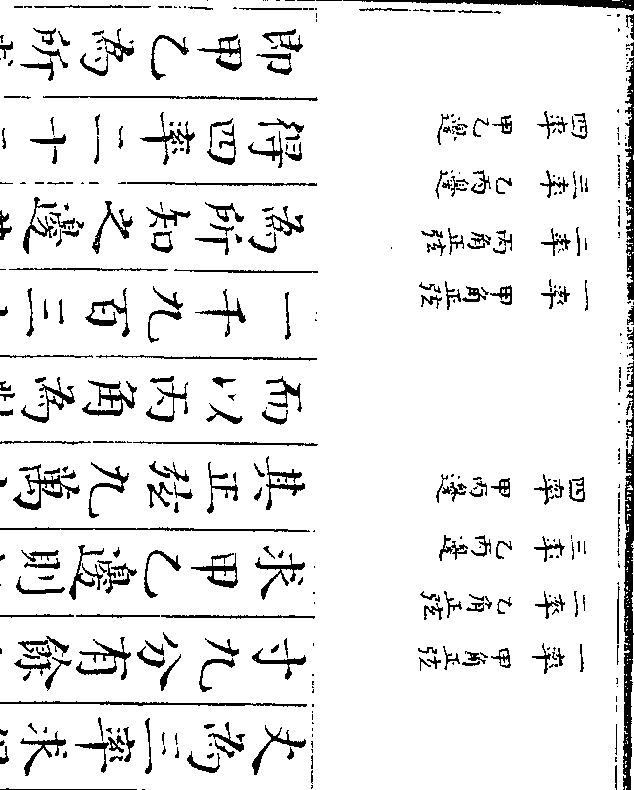 一率 甲角正弦
二率 乙角正弦
三率 乙丙邊
四率 甲丙邊
一率 甲角正弦
二率 丙角正弦
三率 乙丙邊
四率 甲乙邊
丈為三率求
寸九分有餘
求甲乙邊則
其正弦九萬
而以丙角為
一千九百三
為所知之邊
得四率二十
即甲乙為所